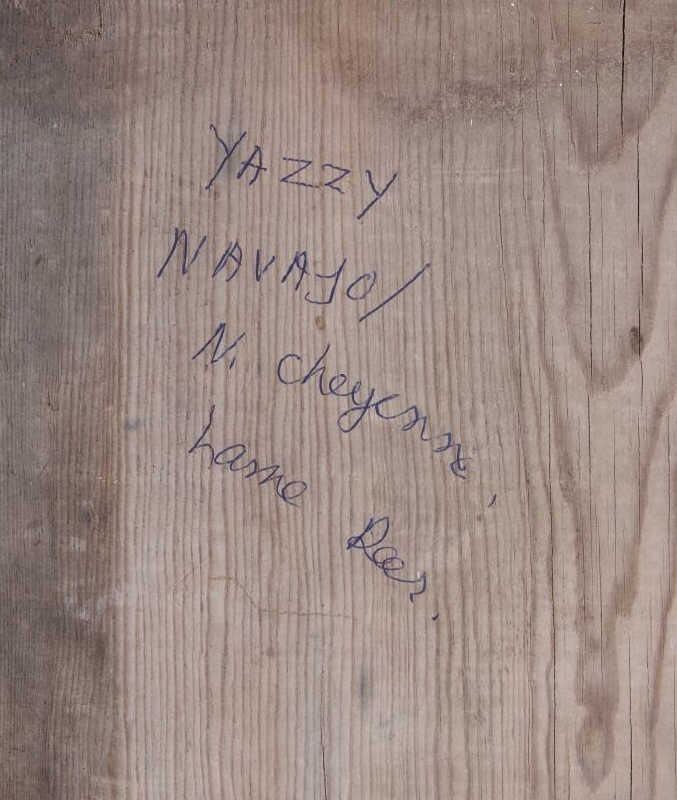 YAZZY
NAVAJO/
N. Cheyenne,
Lame Deer.